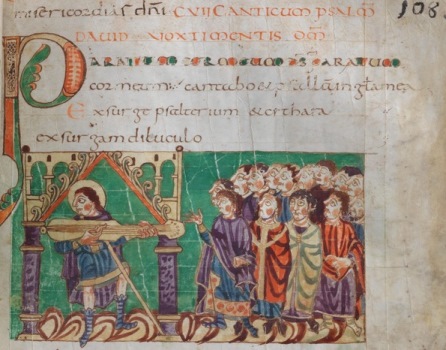 misericordias dñi CVII CANTICUM PSALM̄ 108
DAVID VOX TIMENTIS D̄M
PARATUM COR MEUM D̄S PARATUM
cor meum cantabo & psallam in gła mea
Exsurge psalterium & cithara
exsurgam diluculo